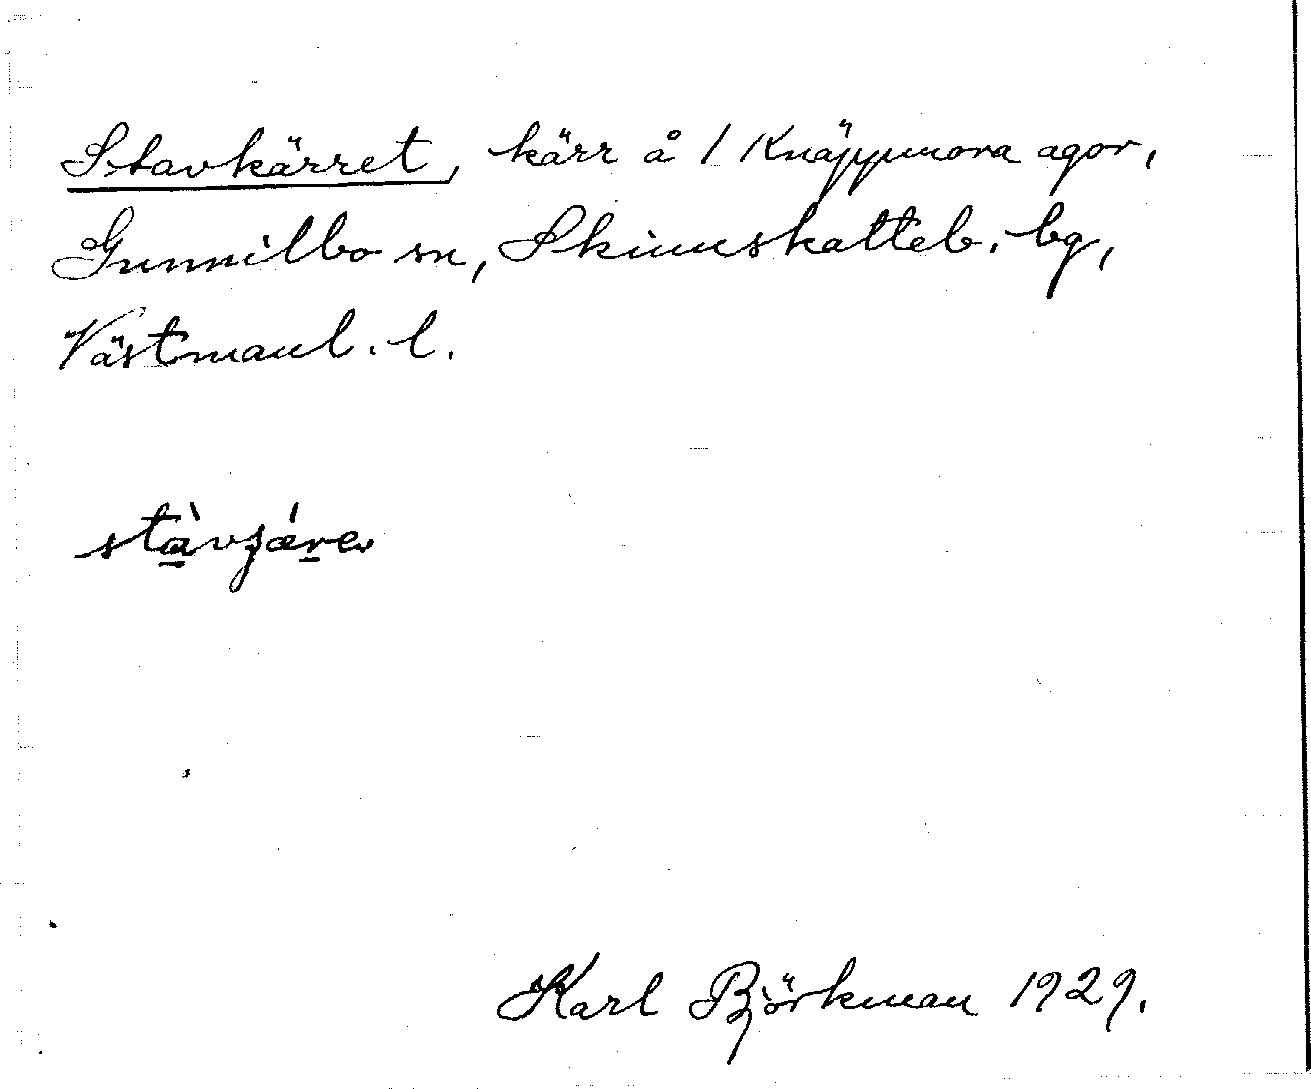 Stavkärret, kärr å 1 Knäppmora ägor,
Gunnilbo sn, Skinnskatteb. bg,
Västmanl. l.
stàvʒá̈re
Karl Björkman 1929.